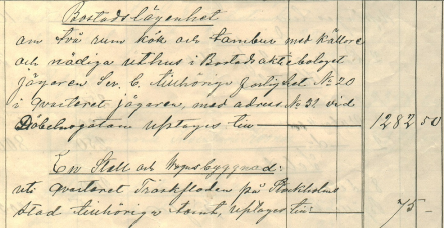 Bostadslägenhet
om två rum kök och tambur med källare
och nödiga uthus i Bostadsaktiebolaget
Jägaren Ser. C, tillhörige fastighet No 20
i qvarteret Jägaren, med adress No 31 vid
Döbelnsgatan uptages till 1282 50
En Stall och Vagnsbyggnad:
uti qvarteret Träskfloden på Stockholms
stad tillhörige tomt, uptages till 75 -